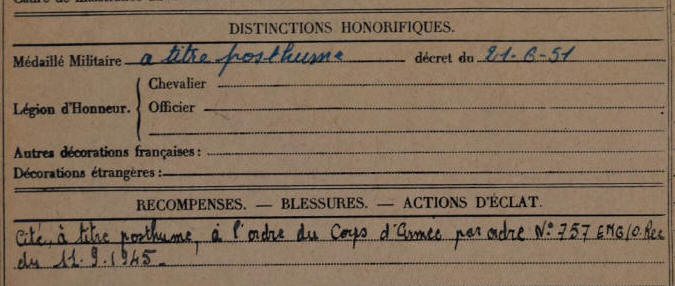 DISTINCTIONS HONORIFIQUES.
Médaillé Militaire a titre posthume décret du 21-6-51
Légion d'Honneur.
Chevalier
Officier
Autres décorations françaises:
Décorations étrangères:
RECOMPENSES. — BLESSURES. — ACTIONS D'ÉCLAT.
Cité, à titre posthume, à l'ordre du Corps d'Armée par ordre N° 757 EMG/O.Rec
du 11.9.1945.